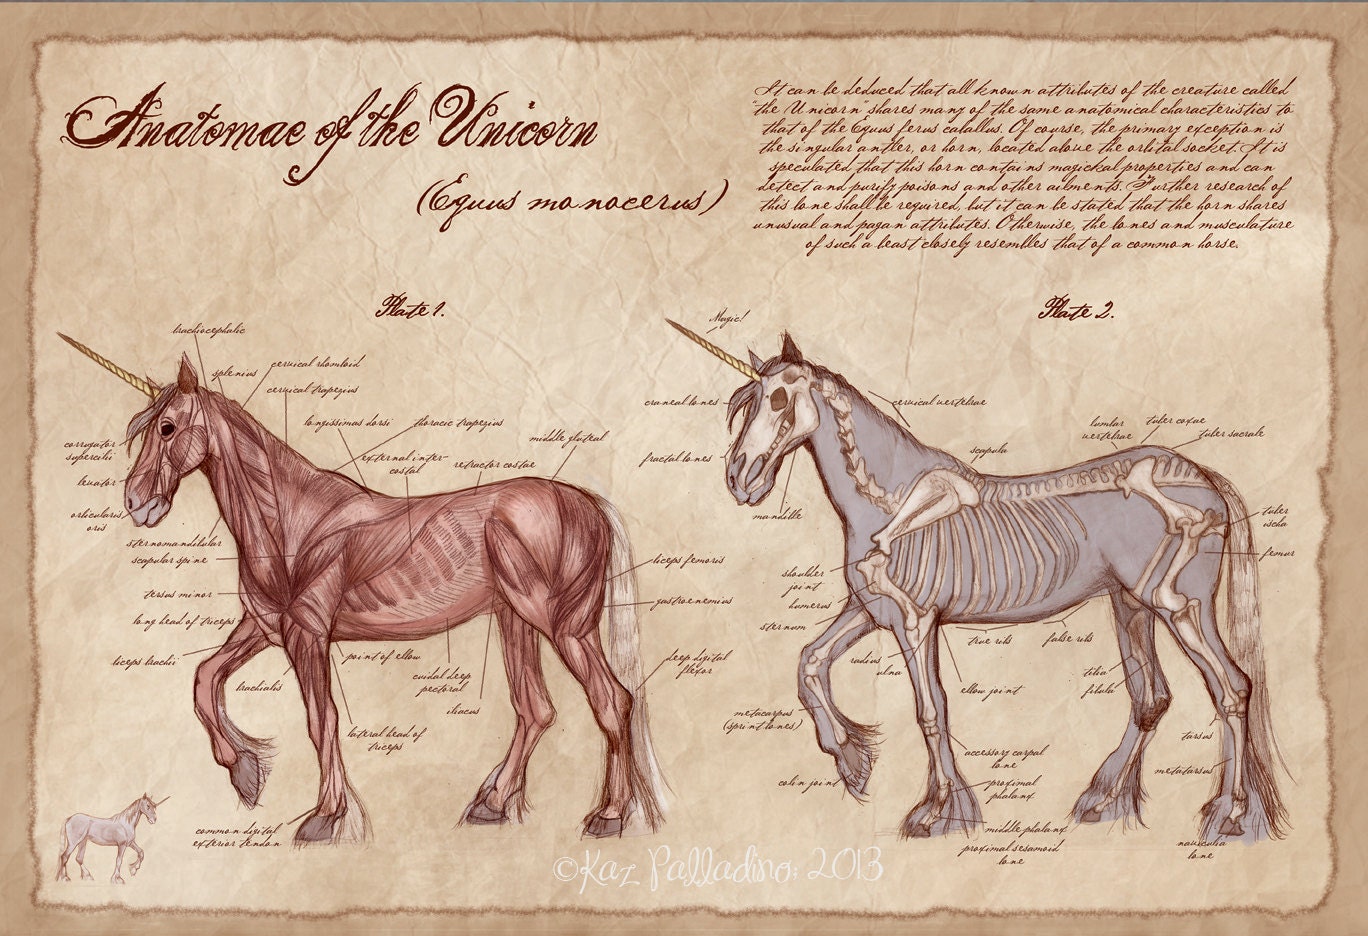 Anatomae of the Unicorn
(Equus monocerus)
It can be deduced that all known attributes of the creature called
"the Unicorn" shares many of the same anatomical characteristics to
that of the Equus ferus caballus. Of course, the primary exception is
the singular antler, or horn, located above the orbital socket. It is
speculated that this horn contains magickal properties and can
detect and purify poisons and other ailments. Further research of
this bone shall be required, but it can be stated that the horn shares
unusual and pagan attributes. Otherwise, the bones and musculature
of such a beast closely resembles that of a common horse.
Plate 1.
brachiocephalic
splenius
cervical rhomboid
cervical trapezius
longissimus dorsi
thoracic trapezius
external inter-
costal
retractor costae
middle gluteal
corrugator
supercilii
levator
orbicularis
oris
sternomandibular
scapular spine
tersus minor
long head of triceps
biceps brachii
brachialis
point of elbow
cuidal deep
pectoral
iliacus
lateral head of
triceps
biceps femoris
gastrocnemius
deep digital
flexor
common digital
exterior tendon
Plate 2.
Magic!
craneal bones
fractal bones
mandible
cervical vertebrae
scapula
lumbar
vertebrae
tuber coxae
tuber sacrale
tuber
ischa
femur
shoulder
joint
humerus
sternum
radius
ulna
true ribs
false ribs
elbow joint
tibia
fibula
metacarpus
(sprint bones)
colin joint
accessory carpal
bone
proximal
phalanx
middle phalanx
proximal sesamoid
bone
tarsus
metatarsus
navicular
bone
©Kaz Palladino; 2013